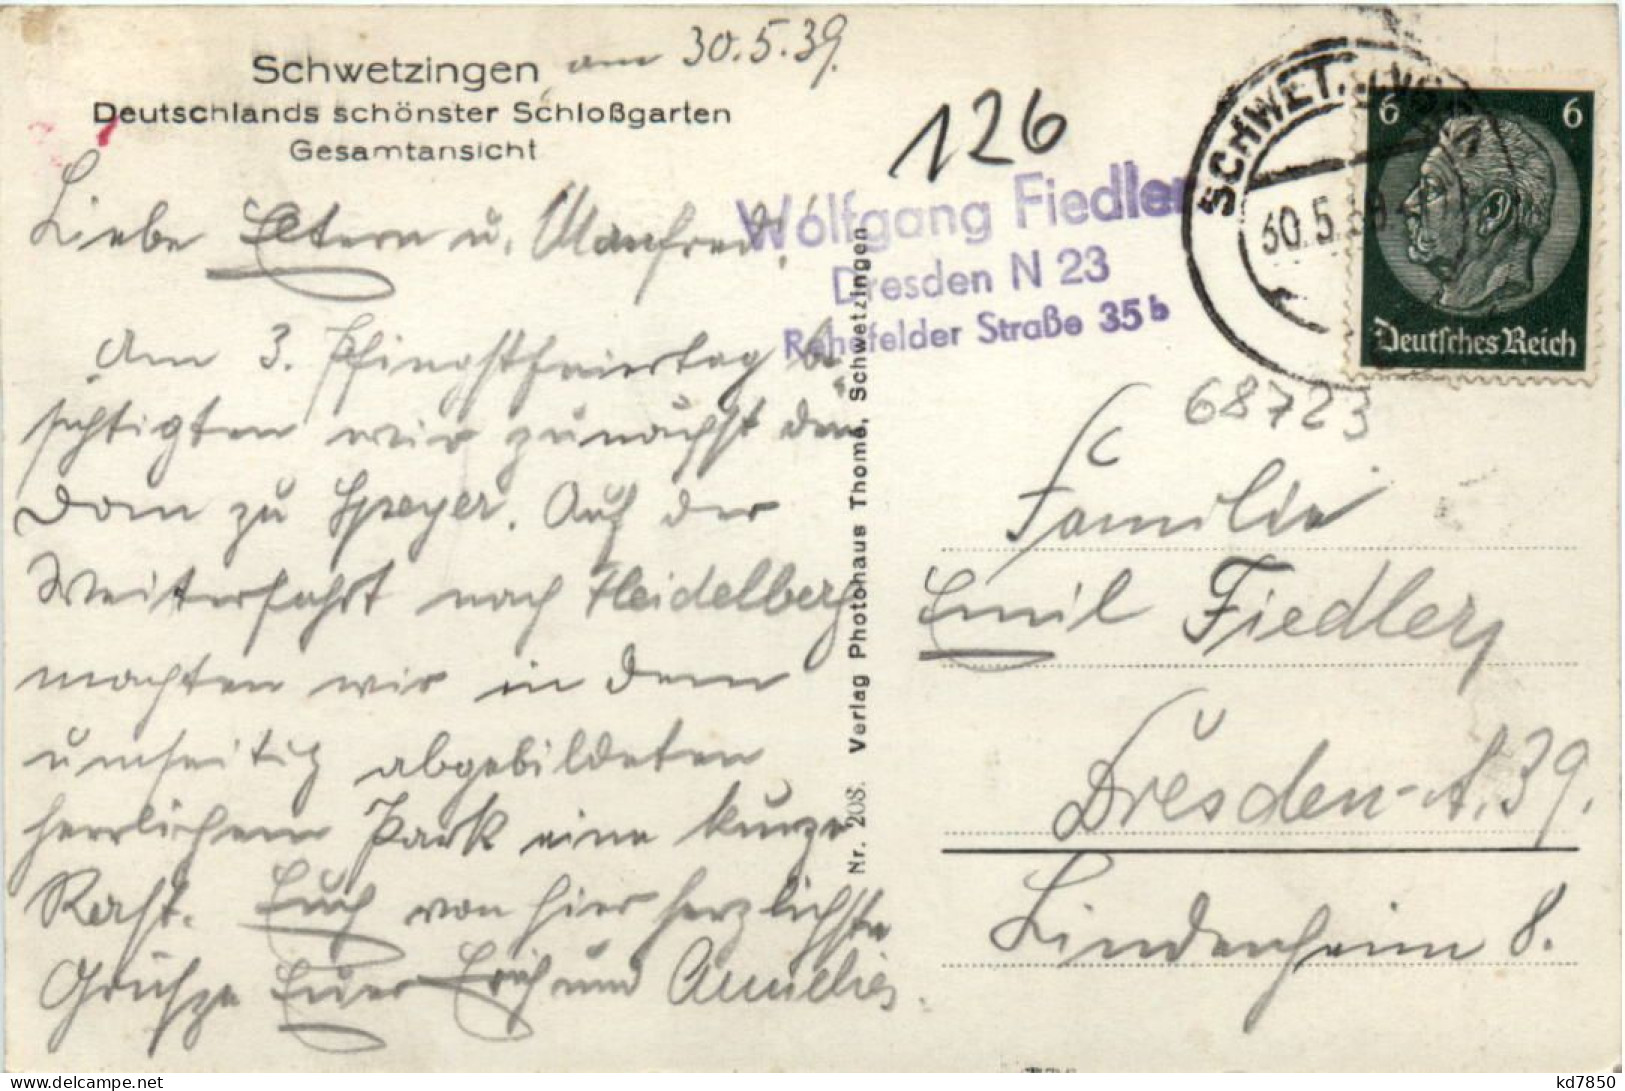 Schwetzingen am 30.5.39.
Deutschlands schönster Schloßgarten
Gesamtansicht
Liebe Eltern u. Manfred!
Am 3. Pfingstfeiertag be-
sichtigten wir zunächst den
Dom zu Speyer. Auf der
Weiterfahrt nach Heidelberg
machten wir in dem
umseitig abgebildeten
herrlichen Park eine kurze
Rast. Euch von hier herzlichste
Grüße Euer Erich und Annelies.
Nr. 208. Verlag Photohaus Thome, Schwetzingen
126
Wolfgang Fiedler
Dresden N 23
Rehefelder Straße 35 b
SCHWETZINGEN
30.5.39
6 6
Deutsches Reich
68723
Familie
Emil Fiedler,
Dresden-A.39.
Lindenheim 8.
kd7850